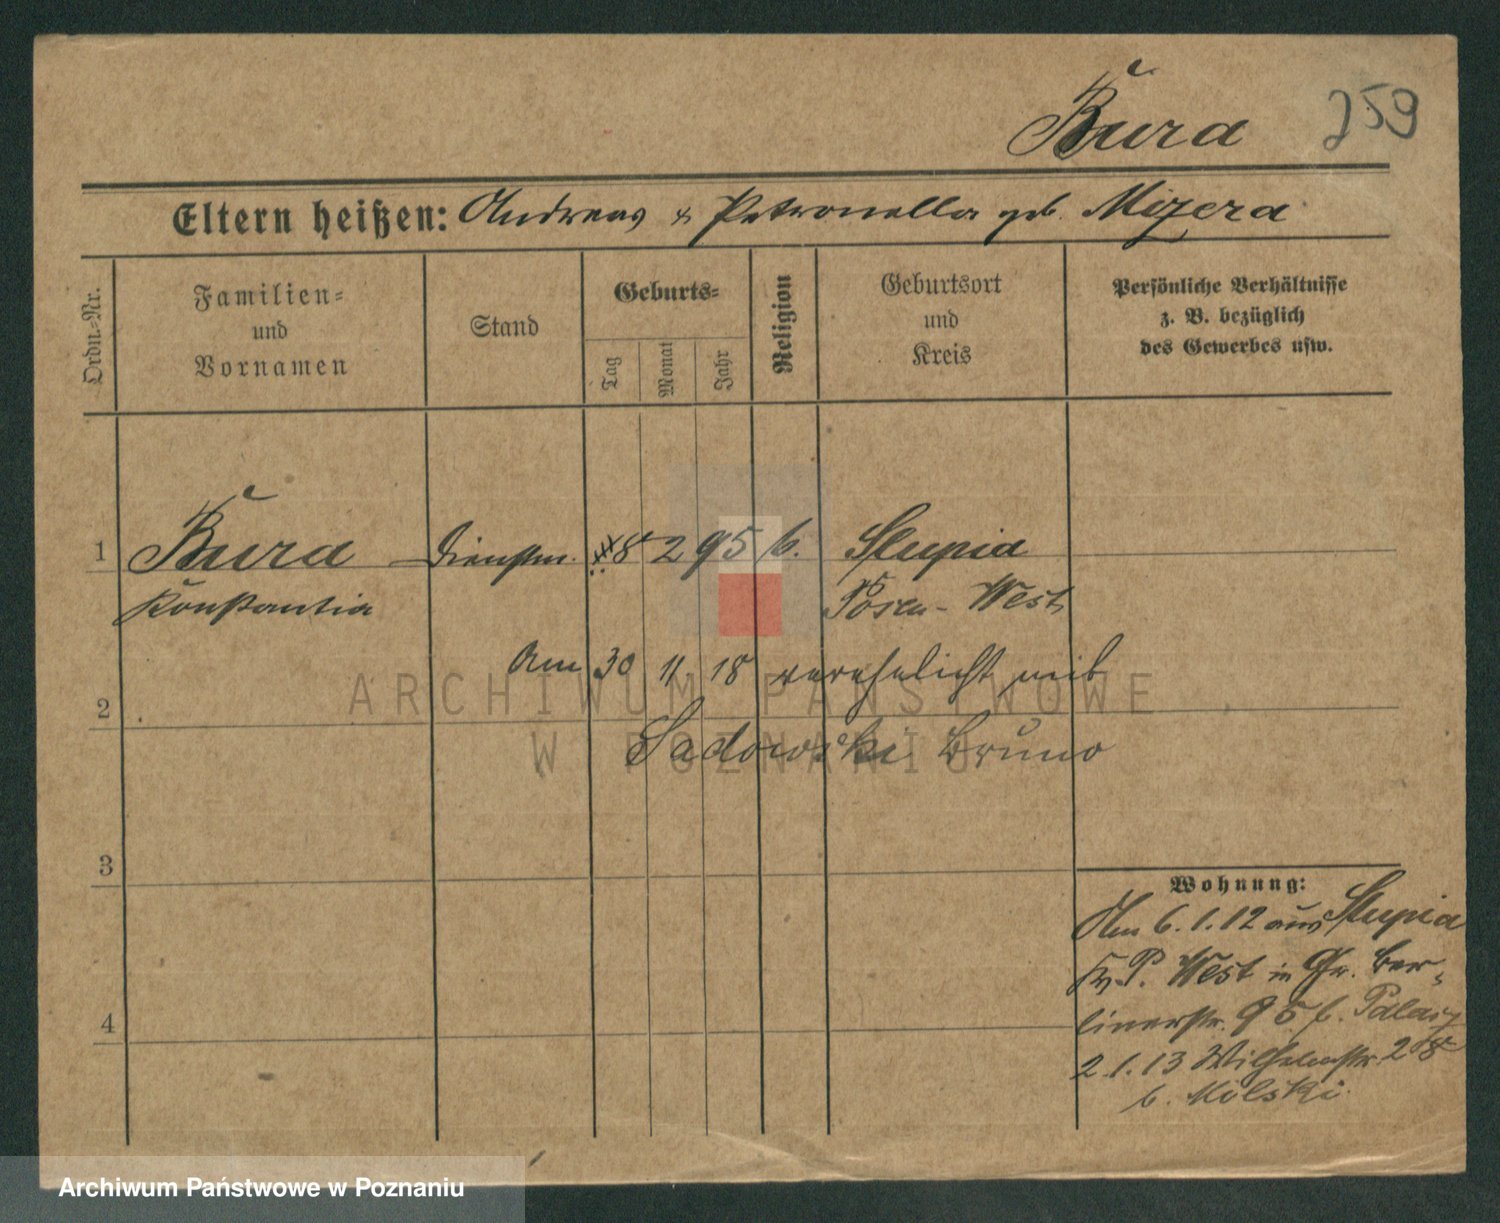 Bura 259
Eltern heißen: Andreas & Petronella geb. Mizera
Ordn.-Nr.
Familien-
und
Vornamen
Stand
Geburts-
Tag
Monat
Jahr
Religion
Geburtsort
und
Kreis
Persönliche Verhältnisse
z. B. bezüglich
des Gewerbes usw.
1 Bura Dienstm. 8 2 95 k. Slupia
Konstantia Posen-West
Am 30 11 18 verehelicht mit
2
Sadowski Bruno
3
4
Wohnung:
Am 6.1.12 aus Slupia
P. West in Gr. Ber-
linerstr. 95 b.
2.1.13 Wilhelmstr. 28
b. Molski
ARCHIWUM PAŃSTWOWE
W POZNANIU
Archiwum Państwowe w Poznaniu